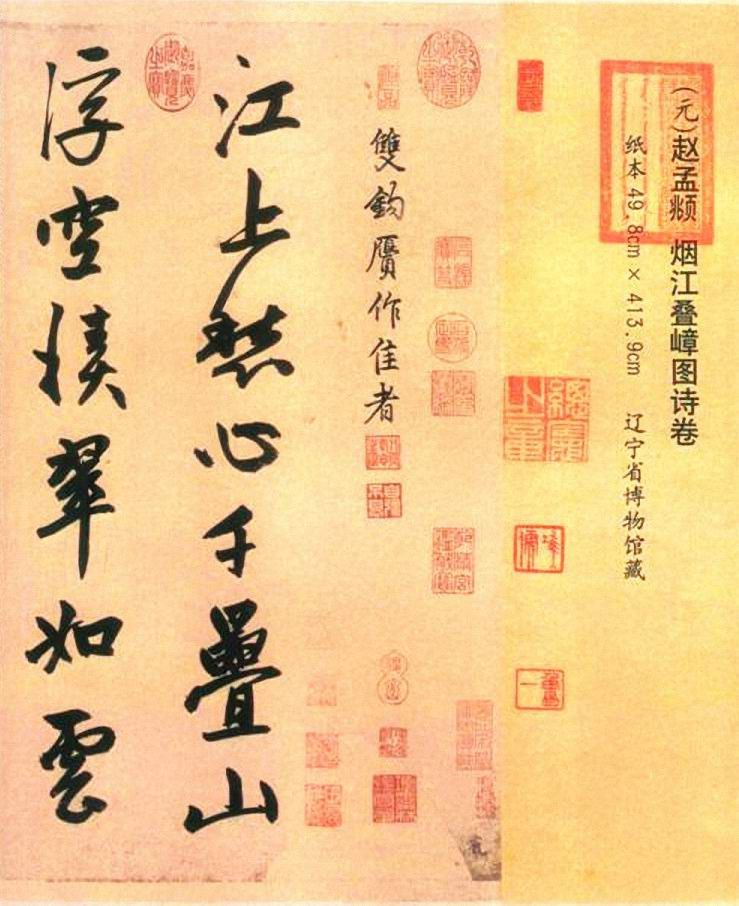 (元)赵孟頫 烟江叠嶂图诗卷
纸本 49.8cm×413.9cm 辽宁省博物馆藏
雙鈎贋作佳者
江上愁心千疊山
浮空積翠如雲